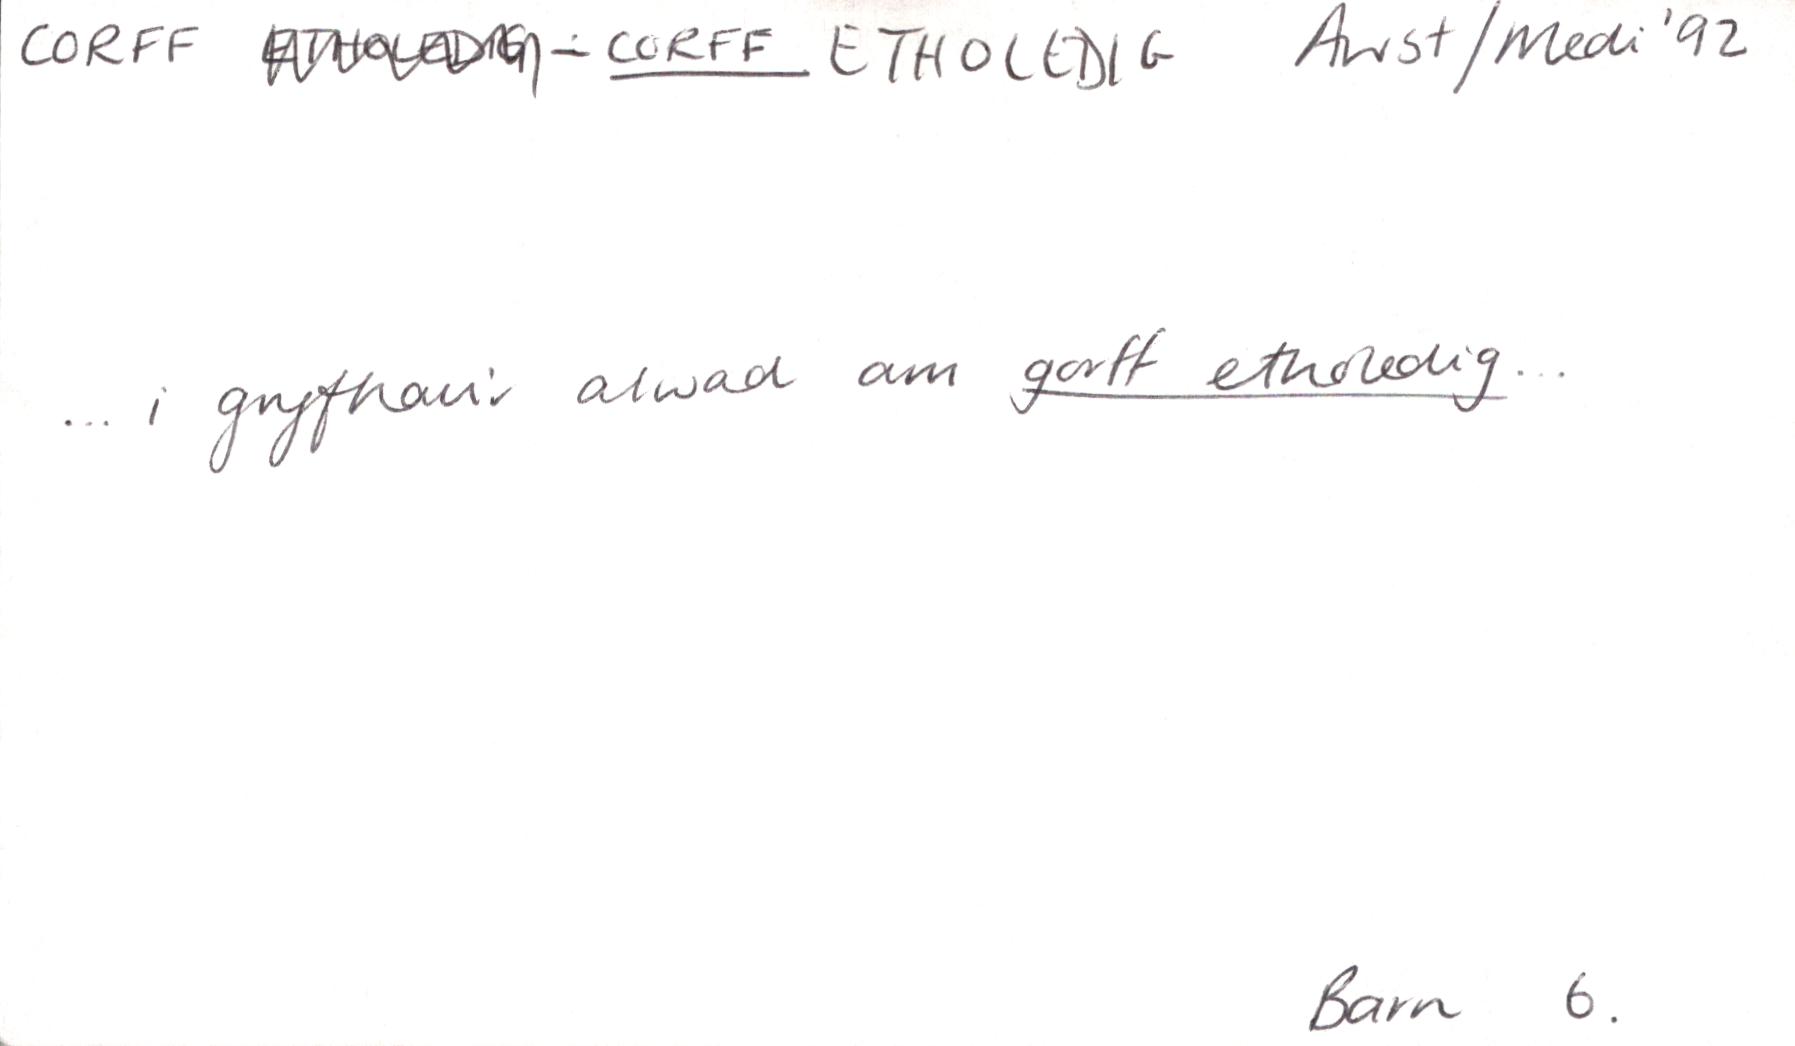 CORFF ETHOLEDIG - CORFF ETHOLEDIG Awst/Medi '92
... i gryfhau'r alwad am gorff etholedig...
Barn 6.